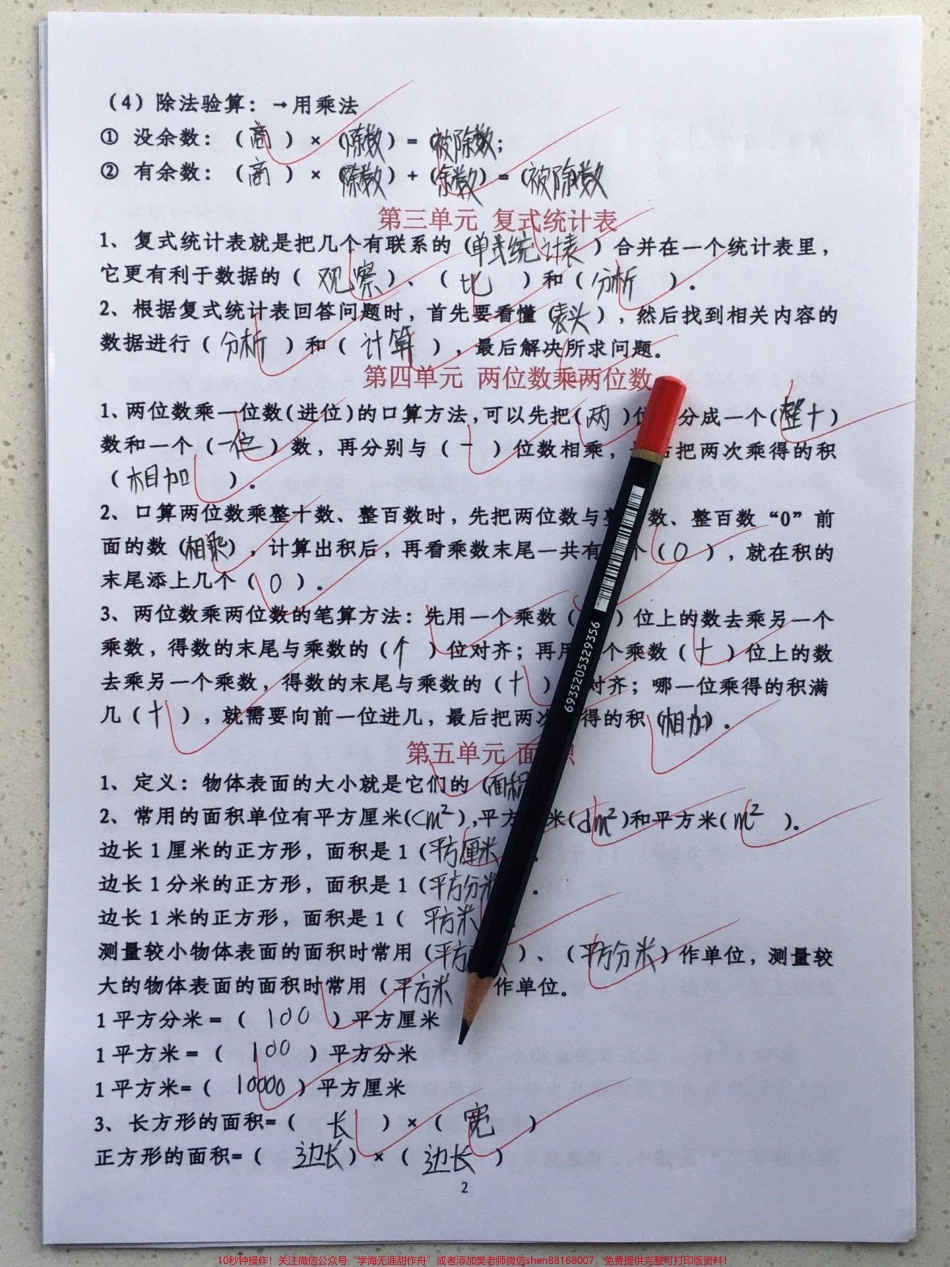 （4）除法验算：→用乘法
① 没余数：（商）×（除数）=（被除数；
② 有余数：（商）×（除数）+（余数）=（被除数
第三单元 复式统计表
1、复式统计表就是把几个有联系的（单式统计表）合并在一个统计表里，
它更有利于数据的（观察）、（比）和（分析）。
2、根据复式统计表回答问题时，首先要看懂（表头），然后找到相关内容的
数据进行（分析）和（计算），最后解决所求问题。
第四单元 两位数乘两位数
1、两位数乘一位数(进位)的口算方法，可以先把（两）位 分成一个（整十）
数和一个（一位）数，再分别与（一）位数相乘， 后把两次乘得的积
（相加）。
2、口算两位数乘整十数、整百数时，先把两位数与整 数、整百数“0”前
面的数（相乘），计算出积后，再看乘数末尾一共有 个（0），就在积的
末尾添上几个（0）。
3、两位数乘两位数的笔算方法：先用一个乘数（ ）位上的数去乘另一个
乘数，得数的末尾与乘数的（个）位对齐；再用 个乘数（十）位上的数
去乘另一个乘数，得数的末尾与乘数的（十） 对齐；哪一位乘得的积满
几（十），就需要向前一位进几，最后把两次 得的积（相加）。
第五单元 面积
1、定义：物体表面的大小就是它们的（面积
2、常用的面积单位有平方厘米（cm²），平方 米（dm²）和平方米（m²）。
边长1厘米的正方形，面积是1（平方厘米 .
边长1分米的正方形，面积是1（平方分米 .
边长1米的正方形，面积是1（平方米
测量较小物体表面的面积时常用（平方 ）、（平方分米）作单位，测量较
大的物体表面的面积时常用（平方米 作单位。
1平方分米=（100）平方厘米
1平方米=（100）平方分米
1平方米=（10000）平方厘米
3、长方形的面积=（长）×（宽）
正方形的面积=（边长）×（边长）
2
6935205329356
10秒钟操作！关注微信公众号“学海无涯甜作舟”或者添加樊老师微信shen88168007，免费提供完整可打印版资料！